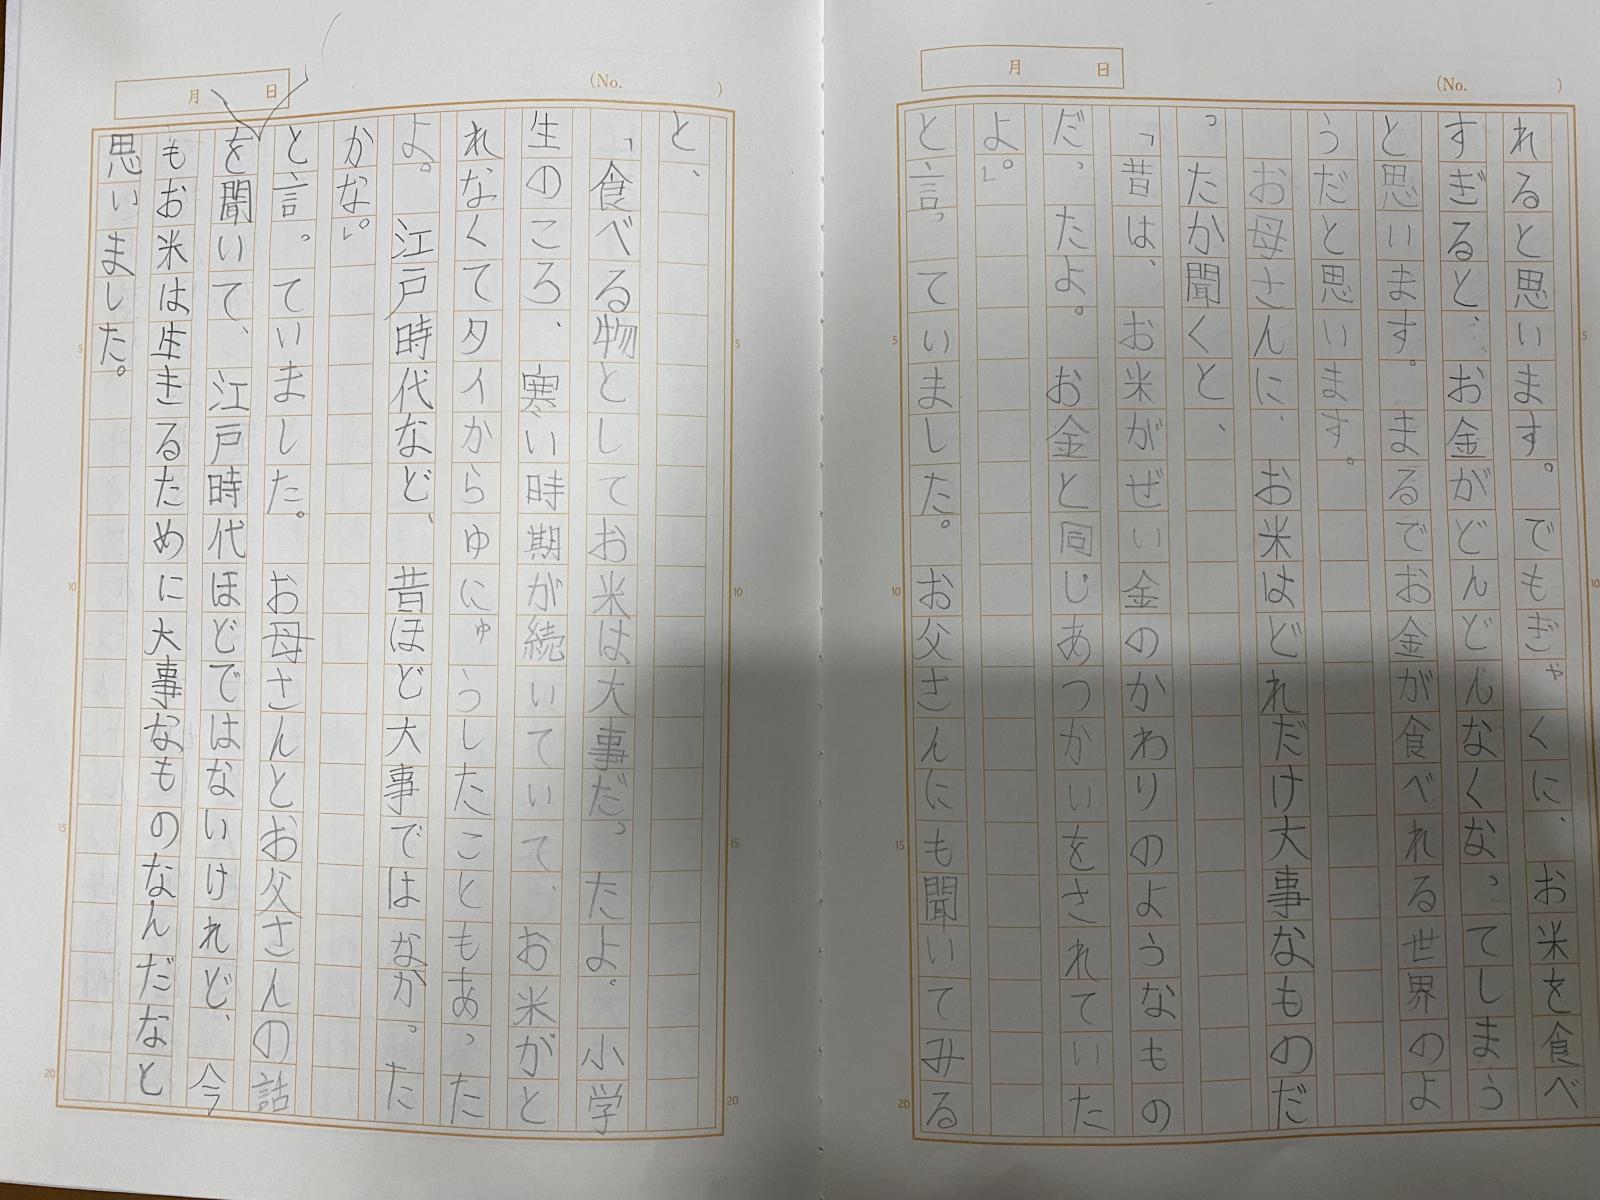 月 日
(No. )
れると思います。でもぎゃくに、お米を食べ
すぎると、お金がどんどんなくなってしまう
と思います。まるでお金が食べれる世界のよ
うだと思います。
お母さんに、お米はどれだけ大事なものだ
ったか聞くと、
「昔は、お米がぜい金のかわりのようなもの
だったよ。お金と同じあつかいをされていた
よ。」
と言っていました。お父さんにも聞いてみる
月 日
(No. )
と、
「食べる物としてお米は大事だったよ。小学
生のころ、寒い時期が続いていて、お米がと
れなくてタイからゆにゅうしたこともあった
よ。江戸時代など、昔ほど大事ではなかった
かな。」
と言っていました。お母さんとお父さんの話
を聞いて、江戸時代ほどではないけれど、今
もお米は生きるために大事なものなんだなと
思いました。
5
10
15
20
5
10
15
20
5
10